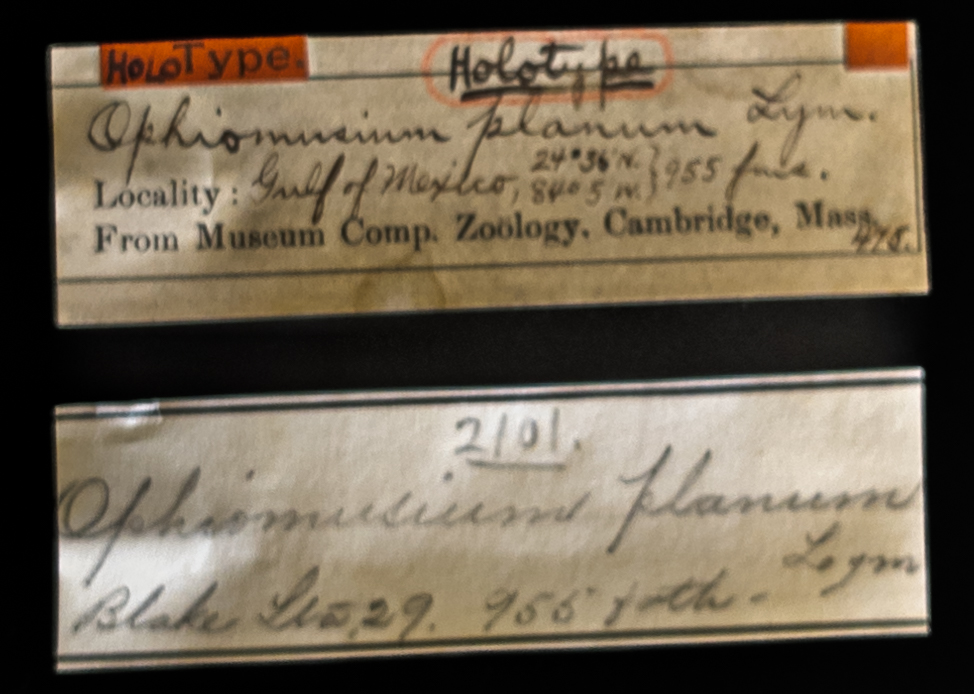 HoloType. Holotype
Ophiomusium planum Lym.
Locality: Gulf of Mexico, 24°36'N. 84°05'W. } 955 fms.
From Museum Comp. Zoölogy, Cambridge, Mass.
475.
2101.
Ophiomusium planum
Lym
Blake Sta, 29. 955 fath.